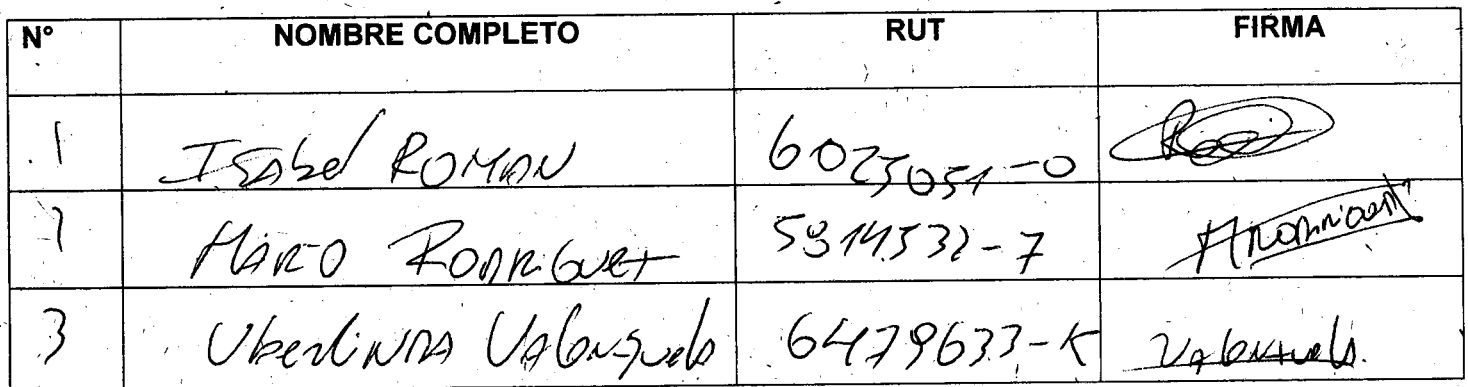 N° NOMBRE COMPLETO RUT FIRMA
1 Isabel ROMAN 6025051-0
2 MARIO RODRIGUEZ 5814532-7
3 UberLiNDA Valenzuela 6479633-K Valenzuela